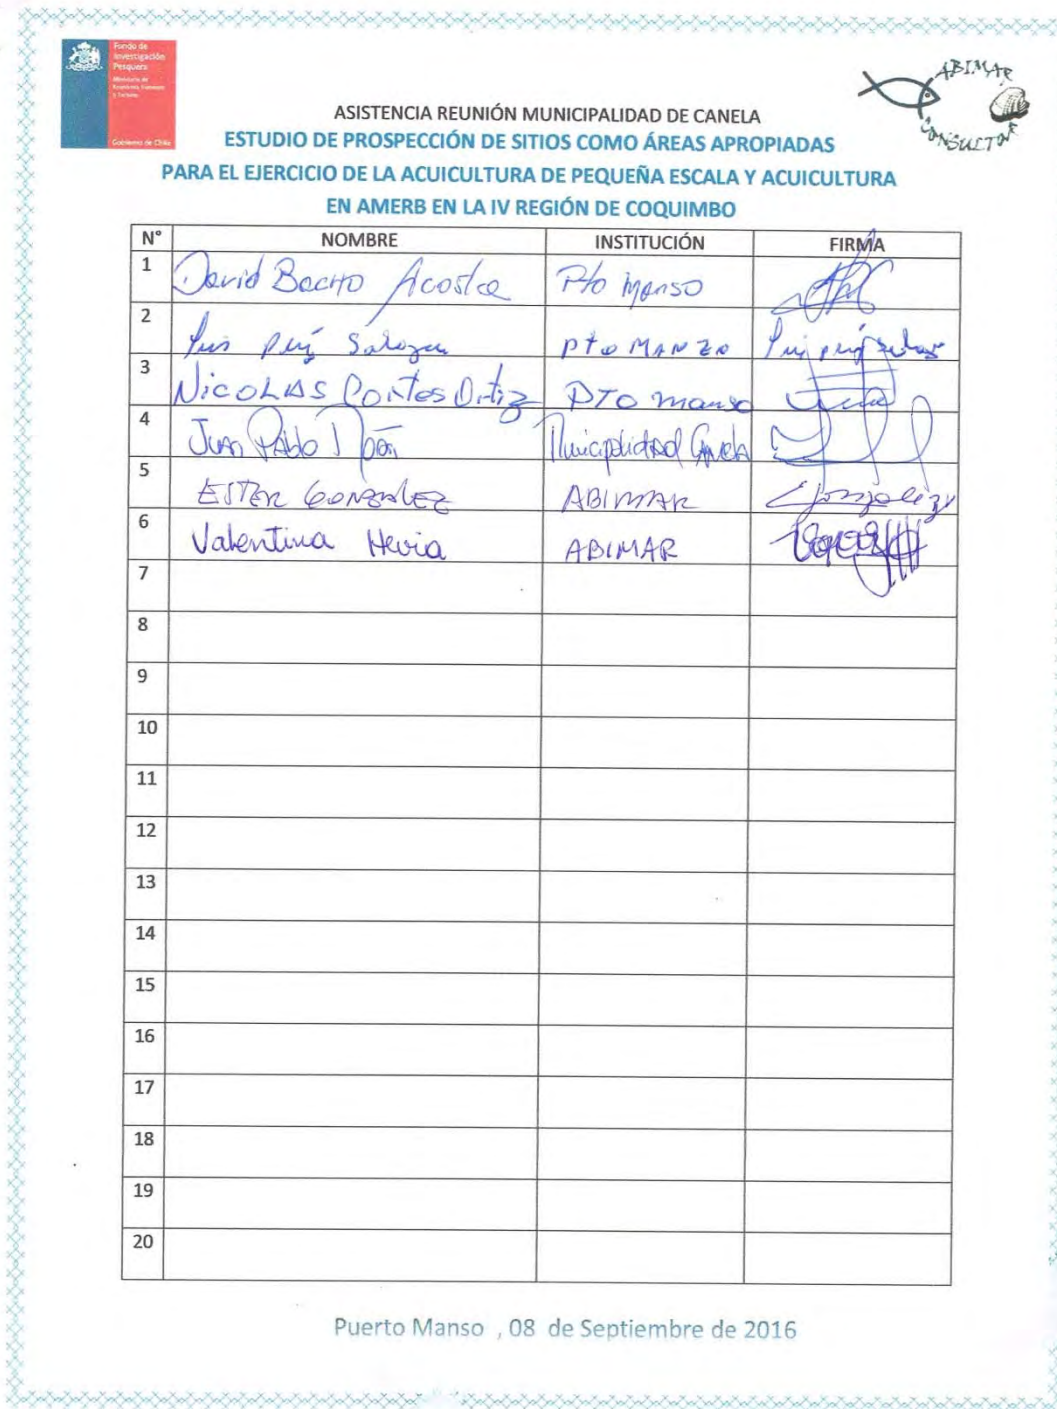 Fondo de
Investigación
Pesquera
Ministerio de
Economía, Fomento
y Turismo
Gobierno de Chile
ABIMAR
CONSULTOR
ASISTENCIA REUNIÓN MUNICIPALIDAD DE CANELA
ESTUDIO DE PROSPECCIÓN DE SITIOS COMO ÁREAS APROPIADAS
PARA EL EJERCICIO DE LA ACUICULTURA DE PEQUEÑA ESCALA Y ACUICULTURA
EN AMERB EN LA IV REGIÓN DE COQUIMBO
N° NOMBRE INSTITUCIÓN FIRMA
1 David Acosta Pto Manso
2 Luis PTO MANZO
3 NICOLAS Cortes Ortiz PTO manso
4 Juan Pablo Municipalidad Canela
5 ESTER GONZALEZ ABIMAR Gonzalez
6 Valentina Hevia ABIMAR
7
8
9
10
11
12
13
14
15
16
17
18
19
20
Puerto Manso , 08 de Septiembre de 2016